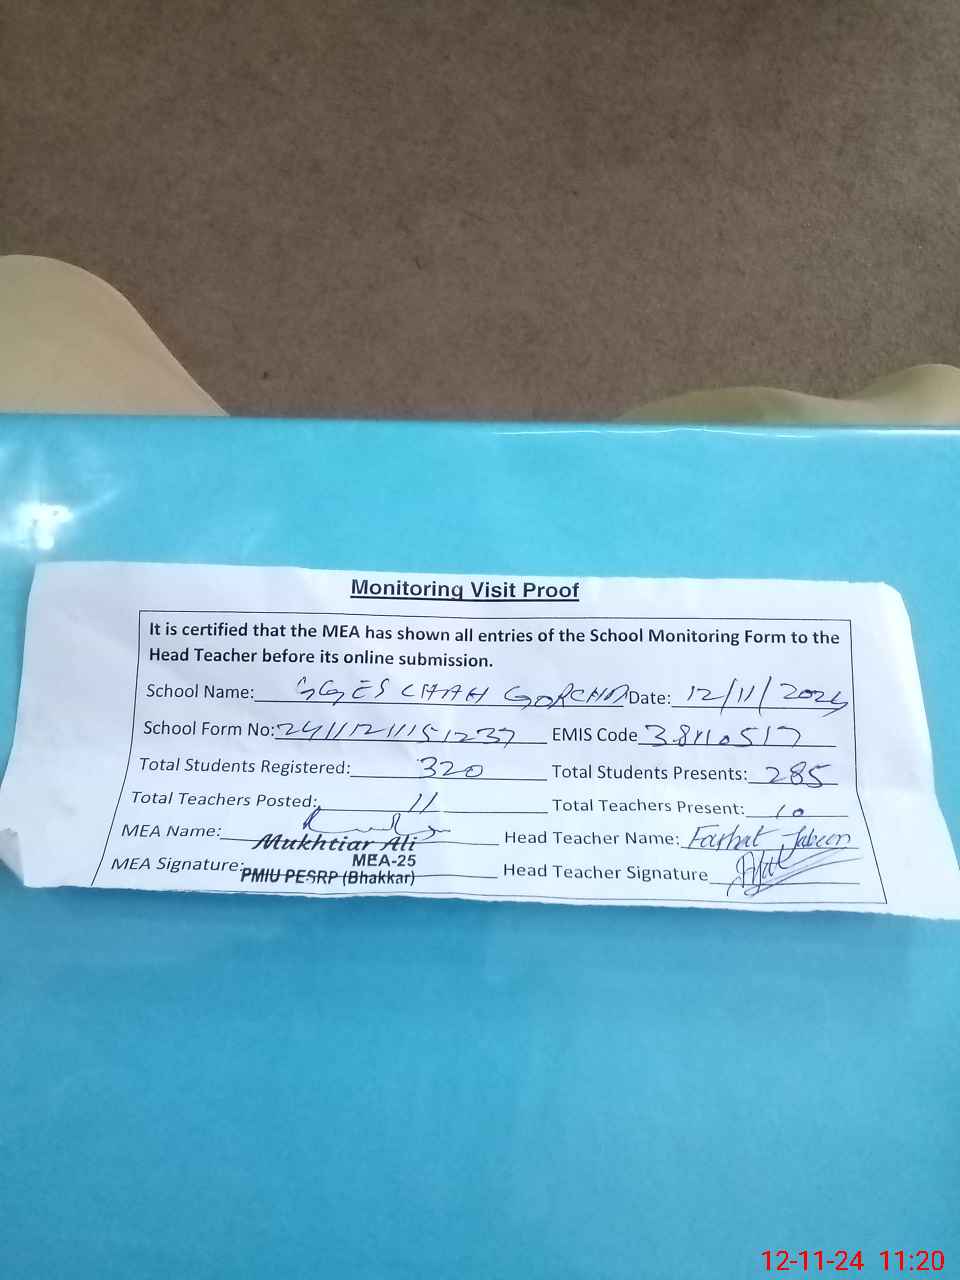 Monitoring Visit Proof
It is certified that the MEA has shown all entries of the School Monitoring Form to the
Head Teacher before its online submission.
School Name: GGES CHAH GORCHA Date: 12/11/2024
School Form No: EMIS Code 38110517
Total Students Registered: 320 Total Students Presents: 285
Total Teachers Posted: 11 Total Teachers Present: 10
MEA Name: Mukhtiar Ali Head Teacher Name: Farhat Jabeen
MEA-25
MEA Signature: PMIU PESRP (Bhakkar) Head Teacher Signature
12-11-24 11:20